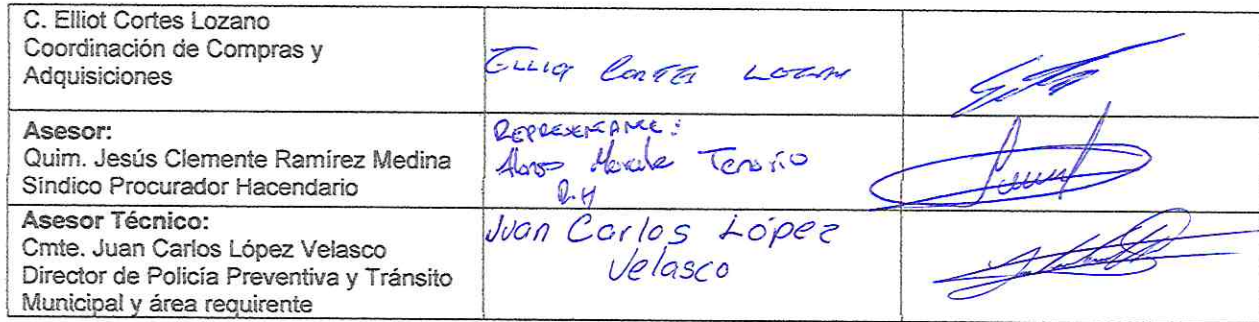 C. Elliot Cortes Lozano
Coordinación de Compras y
Adquisiciones
Elliot Cortes Lozano
Asesor:
Quim. Jesús Clemente Ramírez Medina
Síndico Procurador Hacendario
Representante:
Tenorio
Asesor Técnico:
Cmte. Juan Carlos López Velasco
Director de Policía Preventiva y Tránsito
Municipal y área requirente
Juan Carlos López
Velasco